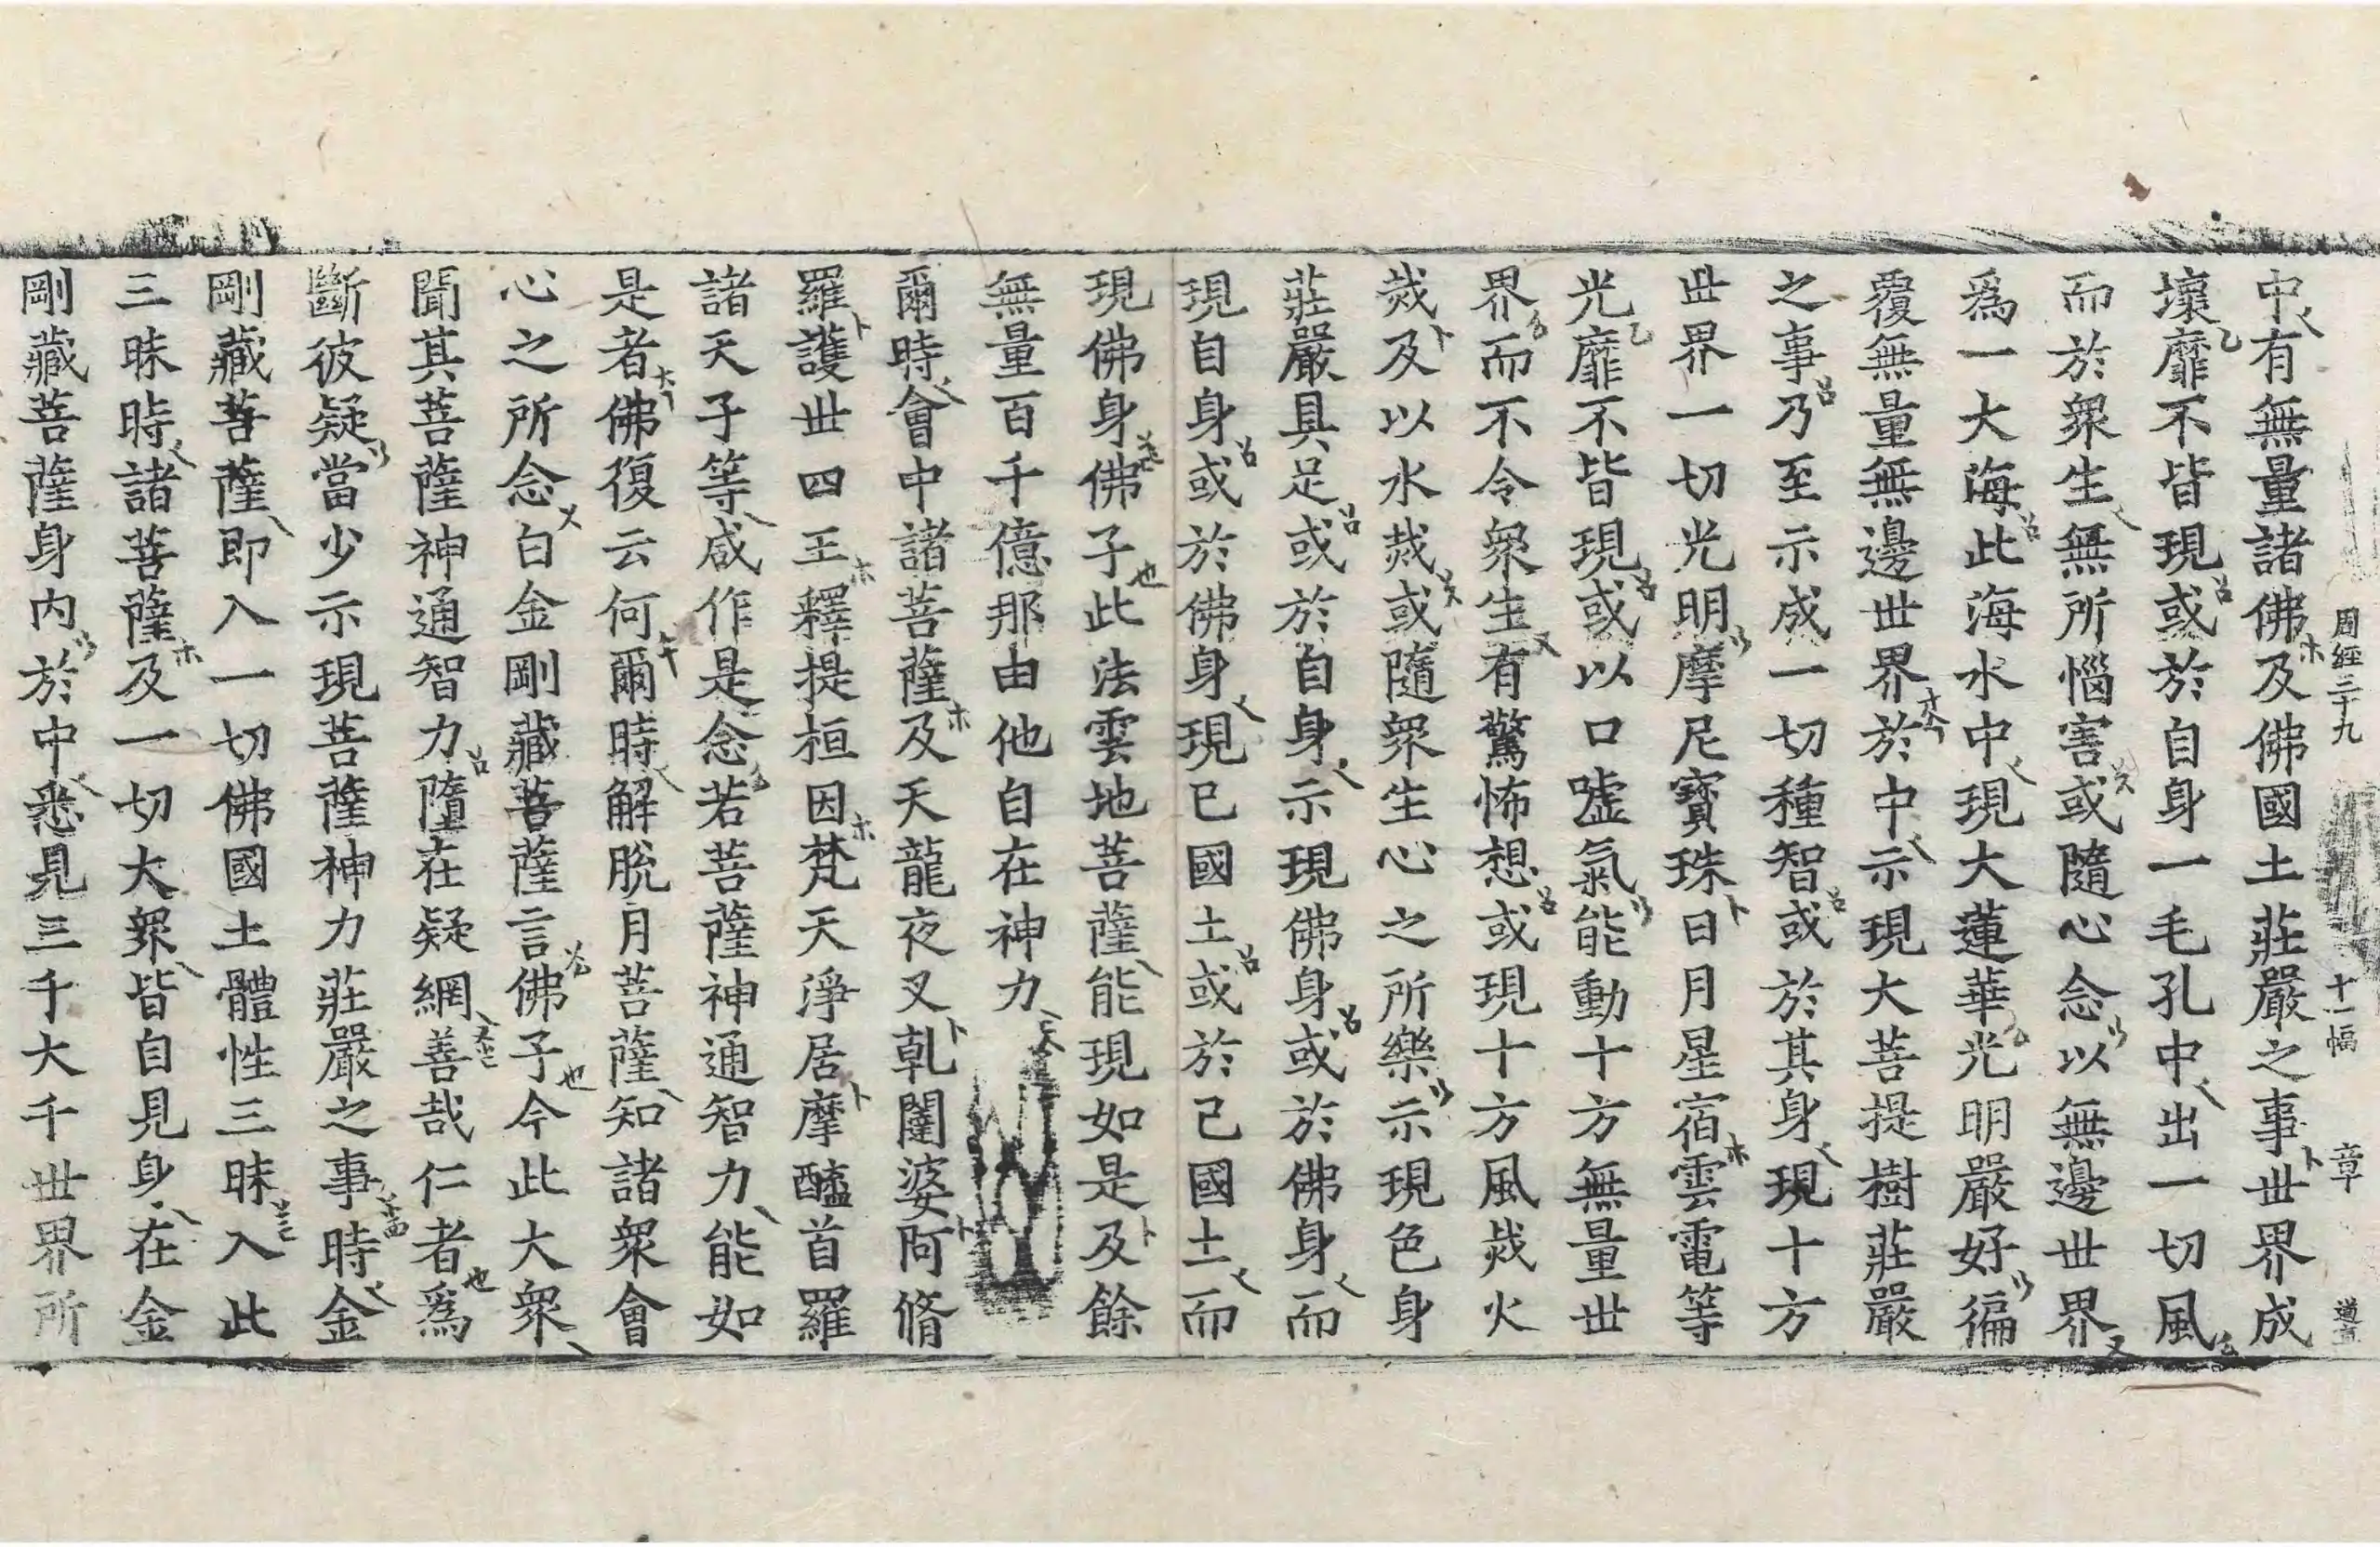 周經三十九 十一幅 章 道直
中有無量諸佛及佛國土莊嚴之事世界成
壞靡不皆現或於自身一毛孔中出一切風
而於衆生無所惱害或隨心念以無邊世界
爲一大海此海水中現大蓮華光明嚴好徧
覆無量無邊世界於中示現大菩提樹莊嚴
之事乃至示成一切種智或於其身現十方
世界一切光明摩尼寶珠日月星宿雲電等
光靡不皆現或以口噓氣能動十方無量世
界而不令衆生有驚怖想或現十方風烖火
烖及以水烖或隨衆生心之所樂示現色身
莊嚴具足或於自身示現佛身或於佛身而
現自身或於佛身現已國土或於己國土而
現佛身佛子此法雲地菩薩能現如是及餘
無量百千億那由他自在神力
爾時會中諸菩薩及天龍夜叉乹闥婆阿脩
羅護世四王釋提桓因梵天淨居摩醯首羅
諸天子等咸作是念若菩薩神通智力能如
是者佛復云何爾時解脫月菩薩知諸衆會
心之所念白金剛藏菩薩言佛子今此大衆
聞其菩薩神通智力墮在疑網善哉仁者爲
斷彼疑當少示現菩薩神力莊嚴之事時金
剛藏菩薩即入一切佛國土體性三昧入此
三昧時諸菩薩及一切大衆皆自見身在金
剛藏菩薩身內於中悉見三千大千世界所